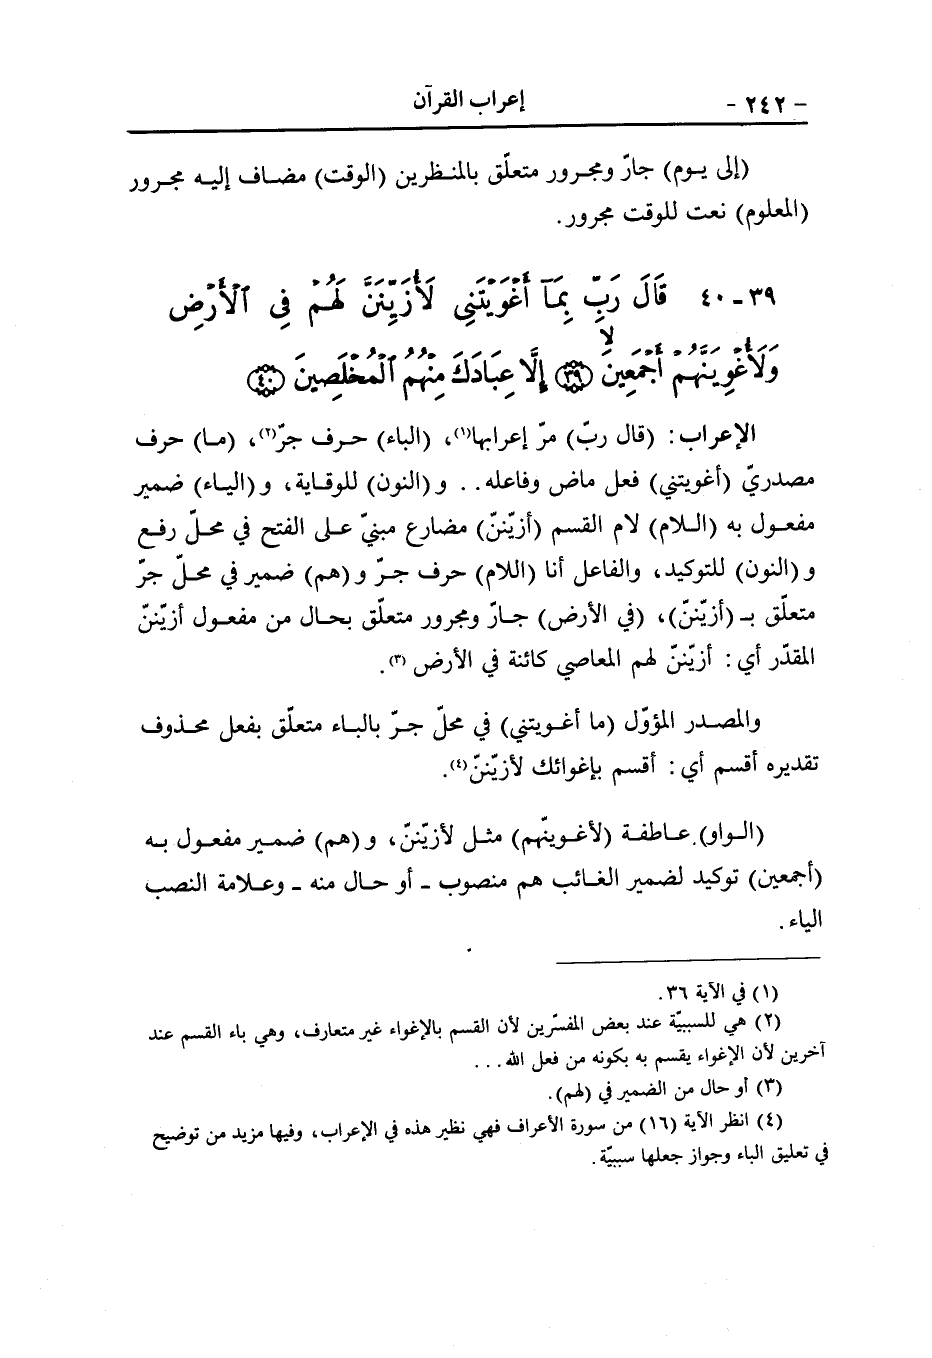 - ٢٤٢ - إعراب القرآن
(إلى يـوم) جارّ ومجـرور متعلّق بالمنـظرين (الوقت) مضـاف إليـه مجـرور
(المعلوم) نعت للوقت مجرور.
٣٩ـ ٤٠ قَالَ رَبِّ بِمَآ أَغْوَيْتَنِى لَأُزَيِّنَنَّ لَهُمْ فِى ٱلْأَرْضِ
وَلَأُغْوِيَنَّهُمْ أَجْمَعِينَ ۙ ٣٩ إِلَّا عِبَادَكَ مِنْهُمُ ٱلْمُخْلَصِينَ ٤٠
الإعراب : (قال ربّ) مرّ إعرابها(١)، (الباء) حـرف جرّ(٢)، (مـا) حرف
مصدريّ (أغويتني) فعل ماض وفاعله . . و (النون) للوقاية، و (اليـاء) ضمير
مفعـول به (الـلام) لام القسم (أزيّننّ) مضارع مبنيّ عـلى الفتح في محـلّ رفـع
و (النون) للتوكيد، والفاعل أنا (اللام) حرف جـرّ و (هم) ضمير في محـلّ جرّ
متعلّق بـ (أزيّننّ)، (في الأرض) جـارّ ومجرور متعلّق بحـال من مفعـول أزيّننّ
المقدّر أي : أزيّننّ لهم المعاصي كائنة في الأرض (٣).
والمصدر المؤوّل (ما أغـويتني) في محلّ جـرّ بالبـاء متعلّق بفعل محـذوف
تقديره أقسم أي : أقسم بإغوائك لأزيّننّ(٤).
(الـواو) عـاطفـة (لأغـوينّهم) مثـل لأزيّننّ، و (هم) ضمـير مفعـول بـه
(أجمعين) توكيد لضمير الغـائب هم منصوب ـ أو حـال منه ـ وعـلامة النصب
الياء .
(١) في الآية ٣٦.
(٢) هي للسببيّة عند بعض المفسّرين لأن القسم بالإغواء غير متعارف، وهي باء القسم عند
آخرين لأن الإغواء يقسم به بكونه من فعل الله . . .
(٣) أو حال من الضمير في (لهم).
(٤) انظر الآية (١٦) من سورة الأعراف فهي نظير هذه في الإعراب، وفيها مزيد من توضيح
في تعليق الباء وجواز جعلها سببيّة .